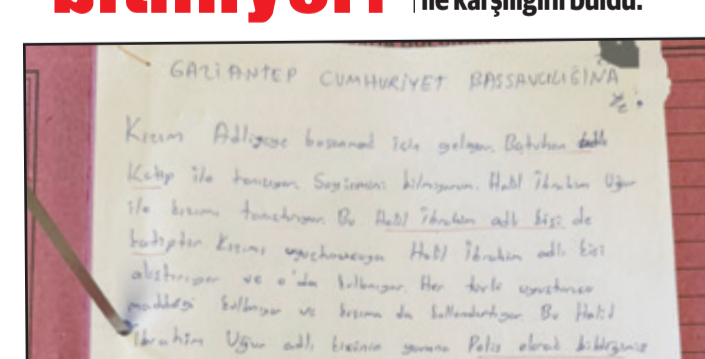 bitmiyor!
ile karşılığını buldu.
GAZİANTEP CUMHURİYET BAŞSAVCILIĞINA
Kızım Adliyeye boşanmak için geliyor. Batuhan adlı
Katip ile tanışıyor. Soyismini bilmiyorum. Halil İbrahim Uğur
ile kızımı tanıştırıyor. Bu Halil İbrahim adlı kişi de
katiptir. Kızımı uyuşturucuya Halil İbrahim adlı kişi
alıştırıyor ve o'da kullanıyor. Her türlü uyuşturucu
maddeyi kullanıyor ve kızıma da kullandırtıyor. Bu Halil
İbrahim Uğur adlı kişinin yanına Polis olarak bildiğimiz